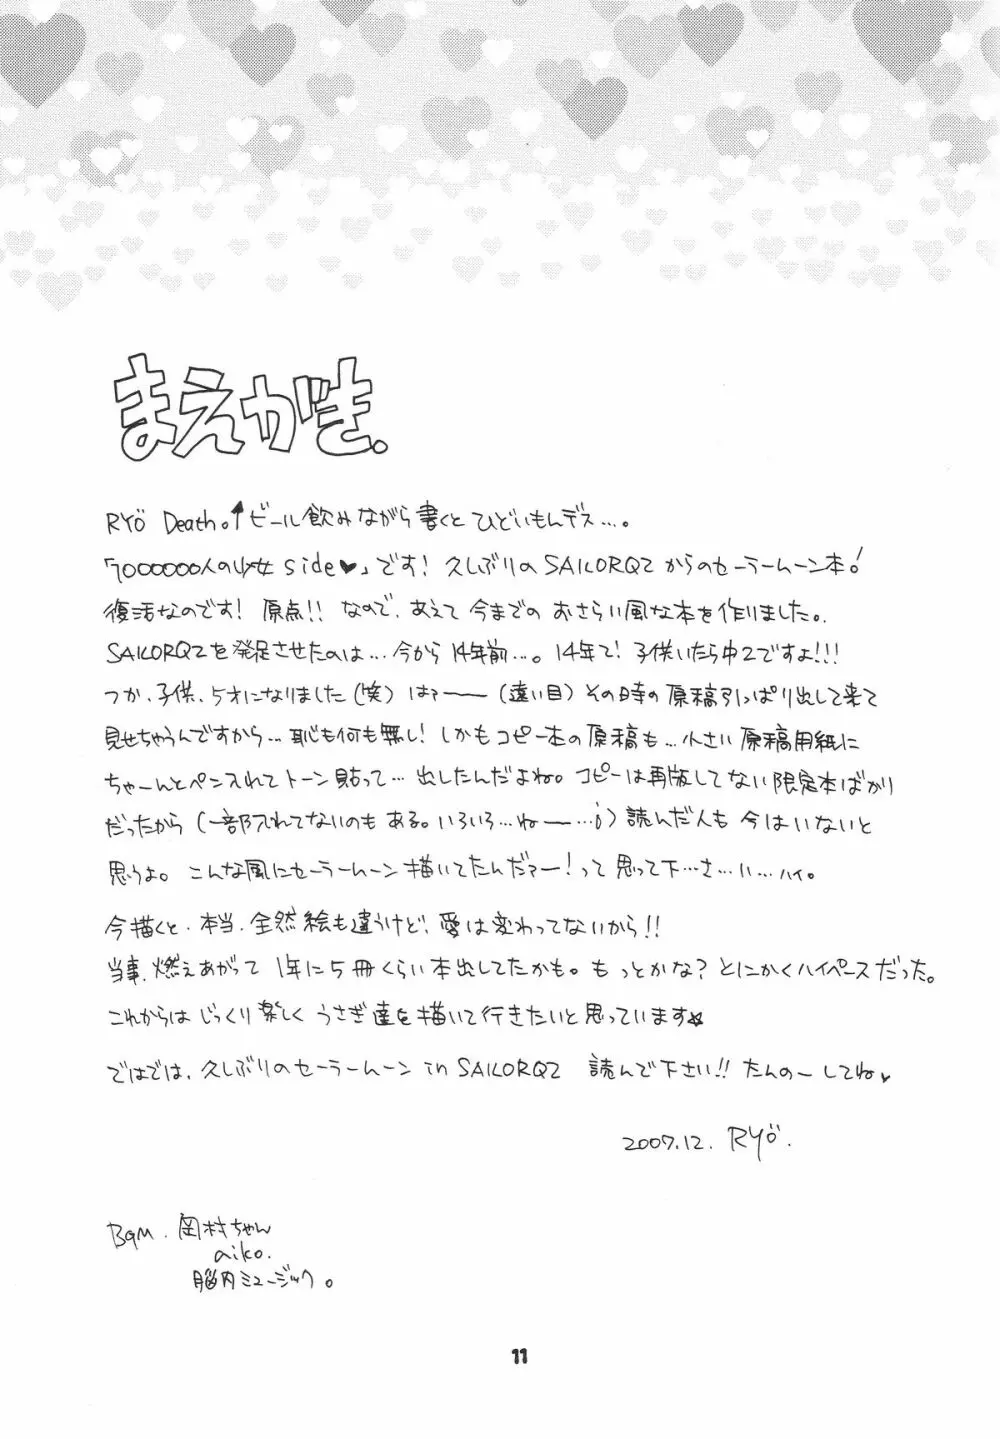 まえがき.
RYÖ Death。↑ビール飲みながら書くとひどいもんデス…。
「7000000人の少女side♥」です! 久しぶりのSAILORQ2からのセーラームーン本!
復活なのです! 原点!! なので、あえて今までのおさらい風な本を作りました。
SAILORQ2を発足させたのは…今から14年前…。14年て! 子供いたら中2ですよ!!!
つか、子供、5才になりました(笑)はァーー(遠い目)その時の原稿引っぱり出して来て
見せちゃうんですから…恥も何も無し! しかもコピー本の原稿も…小さい原稿用紙に
ちゃーんとペン入れてトーン貼って…出したんだよね。コピーは再版してない限定本ばかり
だったから(一部入れてないのもある。いろいろ…ねー…;)読んだ人も今はいないと
思うよ。こんな風にセーラームーン描いてたんだァー!って思って下…さ…い…ハイ。
今描くと、本当、全然絵も違うけど、愛は変わってないから!!
当事、燃えあがって1年に5冊くらい本出してたかも。もっとかな?とにかくハイペースだった。
これからはじっくり楽しくうさぎ達を描いて行きたいと思っています☆
ではでは、久しぶりのセーラームーン in SAILORQ2 読んで下さい!! たんのーしてね♥
2007.12. RYÖ.
BGM. 岡村ちゃん
aiko.
脳内ミュージック。
11